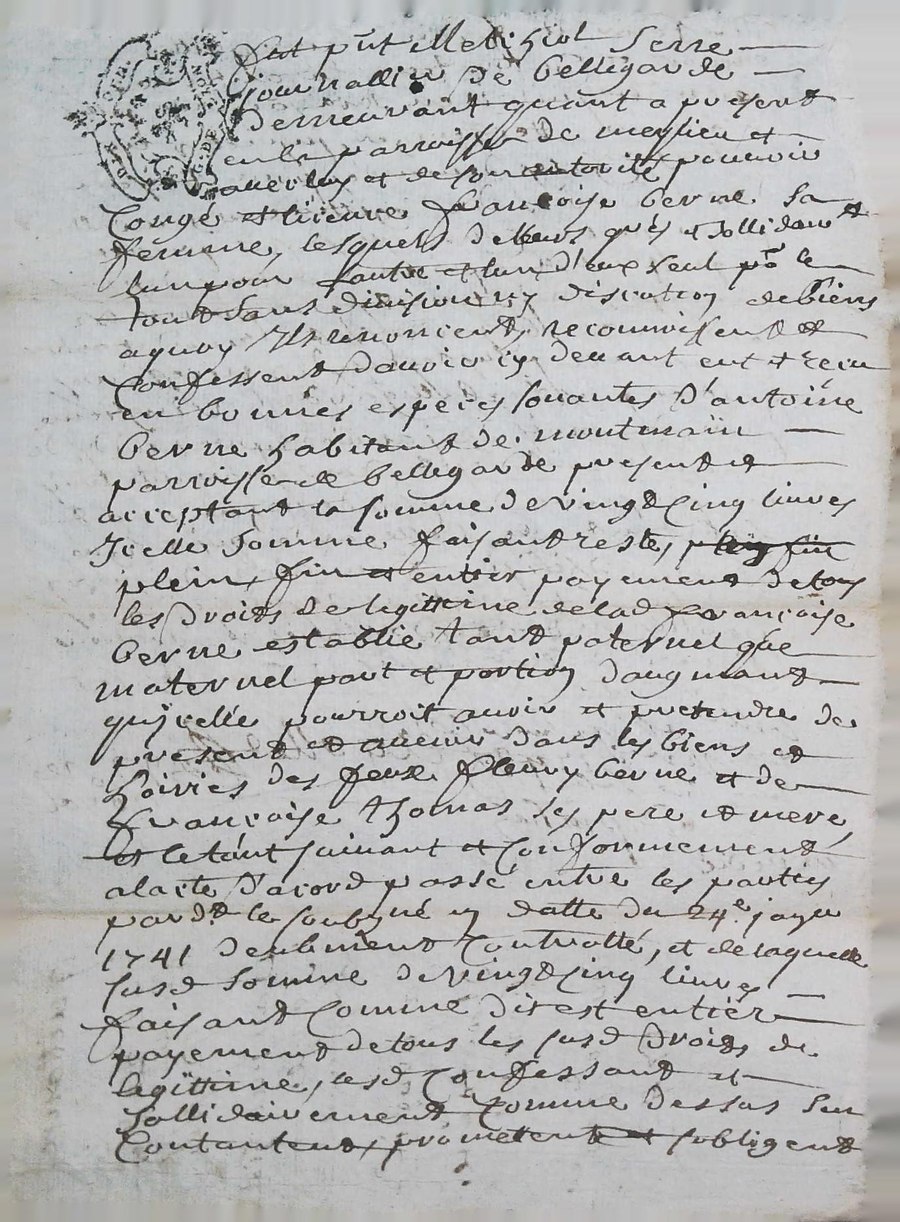 fut pnt Melchiol Serre
journallier de bellegarde
demeurant quant a present
en la parroisse de meylieu et
avec luy et de son autorité, pouvoir
Congé et licence françoise berne sa
femme, lesquels de leurs grés et sollidairt
lun pour lautre et lun d'eux seul po le
tout sans division ny discution de biens
a quoy Ils renoncent, reconnoissent et
Confessent davoir cy devant eut et Receu
en bonnes especes sonantes D'antoine
berne habitant de montmain
parroisse de bellegarde present et
acceptant la somme de vingt Cinq livres
Icelle somme faisant reste, plein fin
plein, fin et entier payement de tous
les droits de legittime de lad françoise
berne establie tant paternel que
maternel part et portion daugmant
qu'icelle pourroit avoir et pretendre de
present et avenir dans les biens et
hoiries des feux fleury berne et de
françoise thomas ses pere et mere,
et le tout suivant et Conformement
a lacte d'acord passé entre les parties
pard.t le soubzné en datte du 24.e janv
1741 deubment Controllé, et de laquelle
susd somme de vingt Cinq livres
faisant Comme dit est entier
payement de tous les susd droits de
legittime, lesd Confessant et
sollidairement Comme dessus sen
Contantent, prometent et sobligent